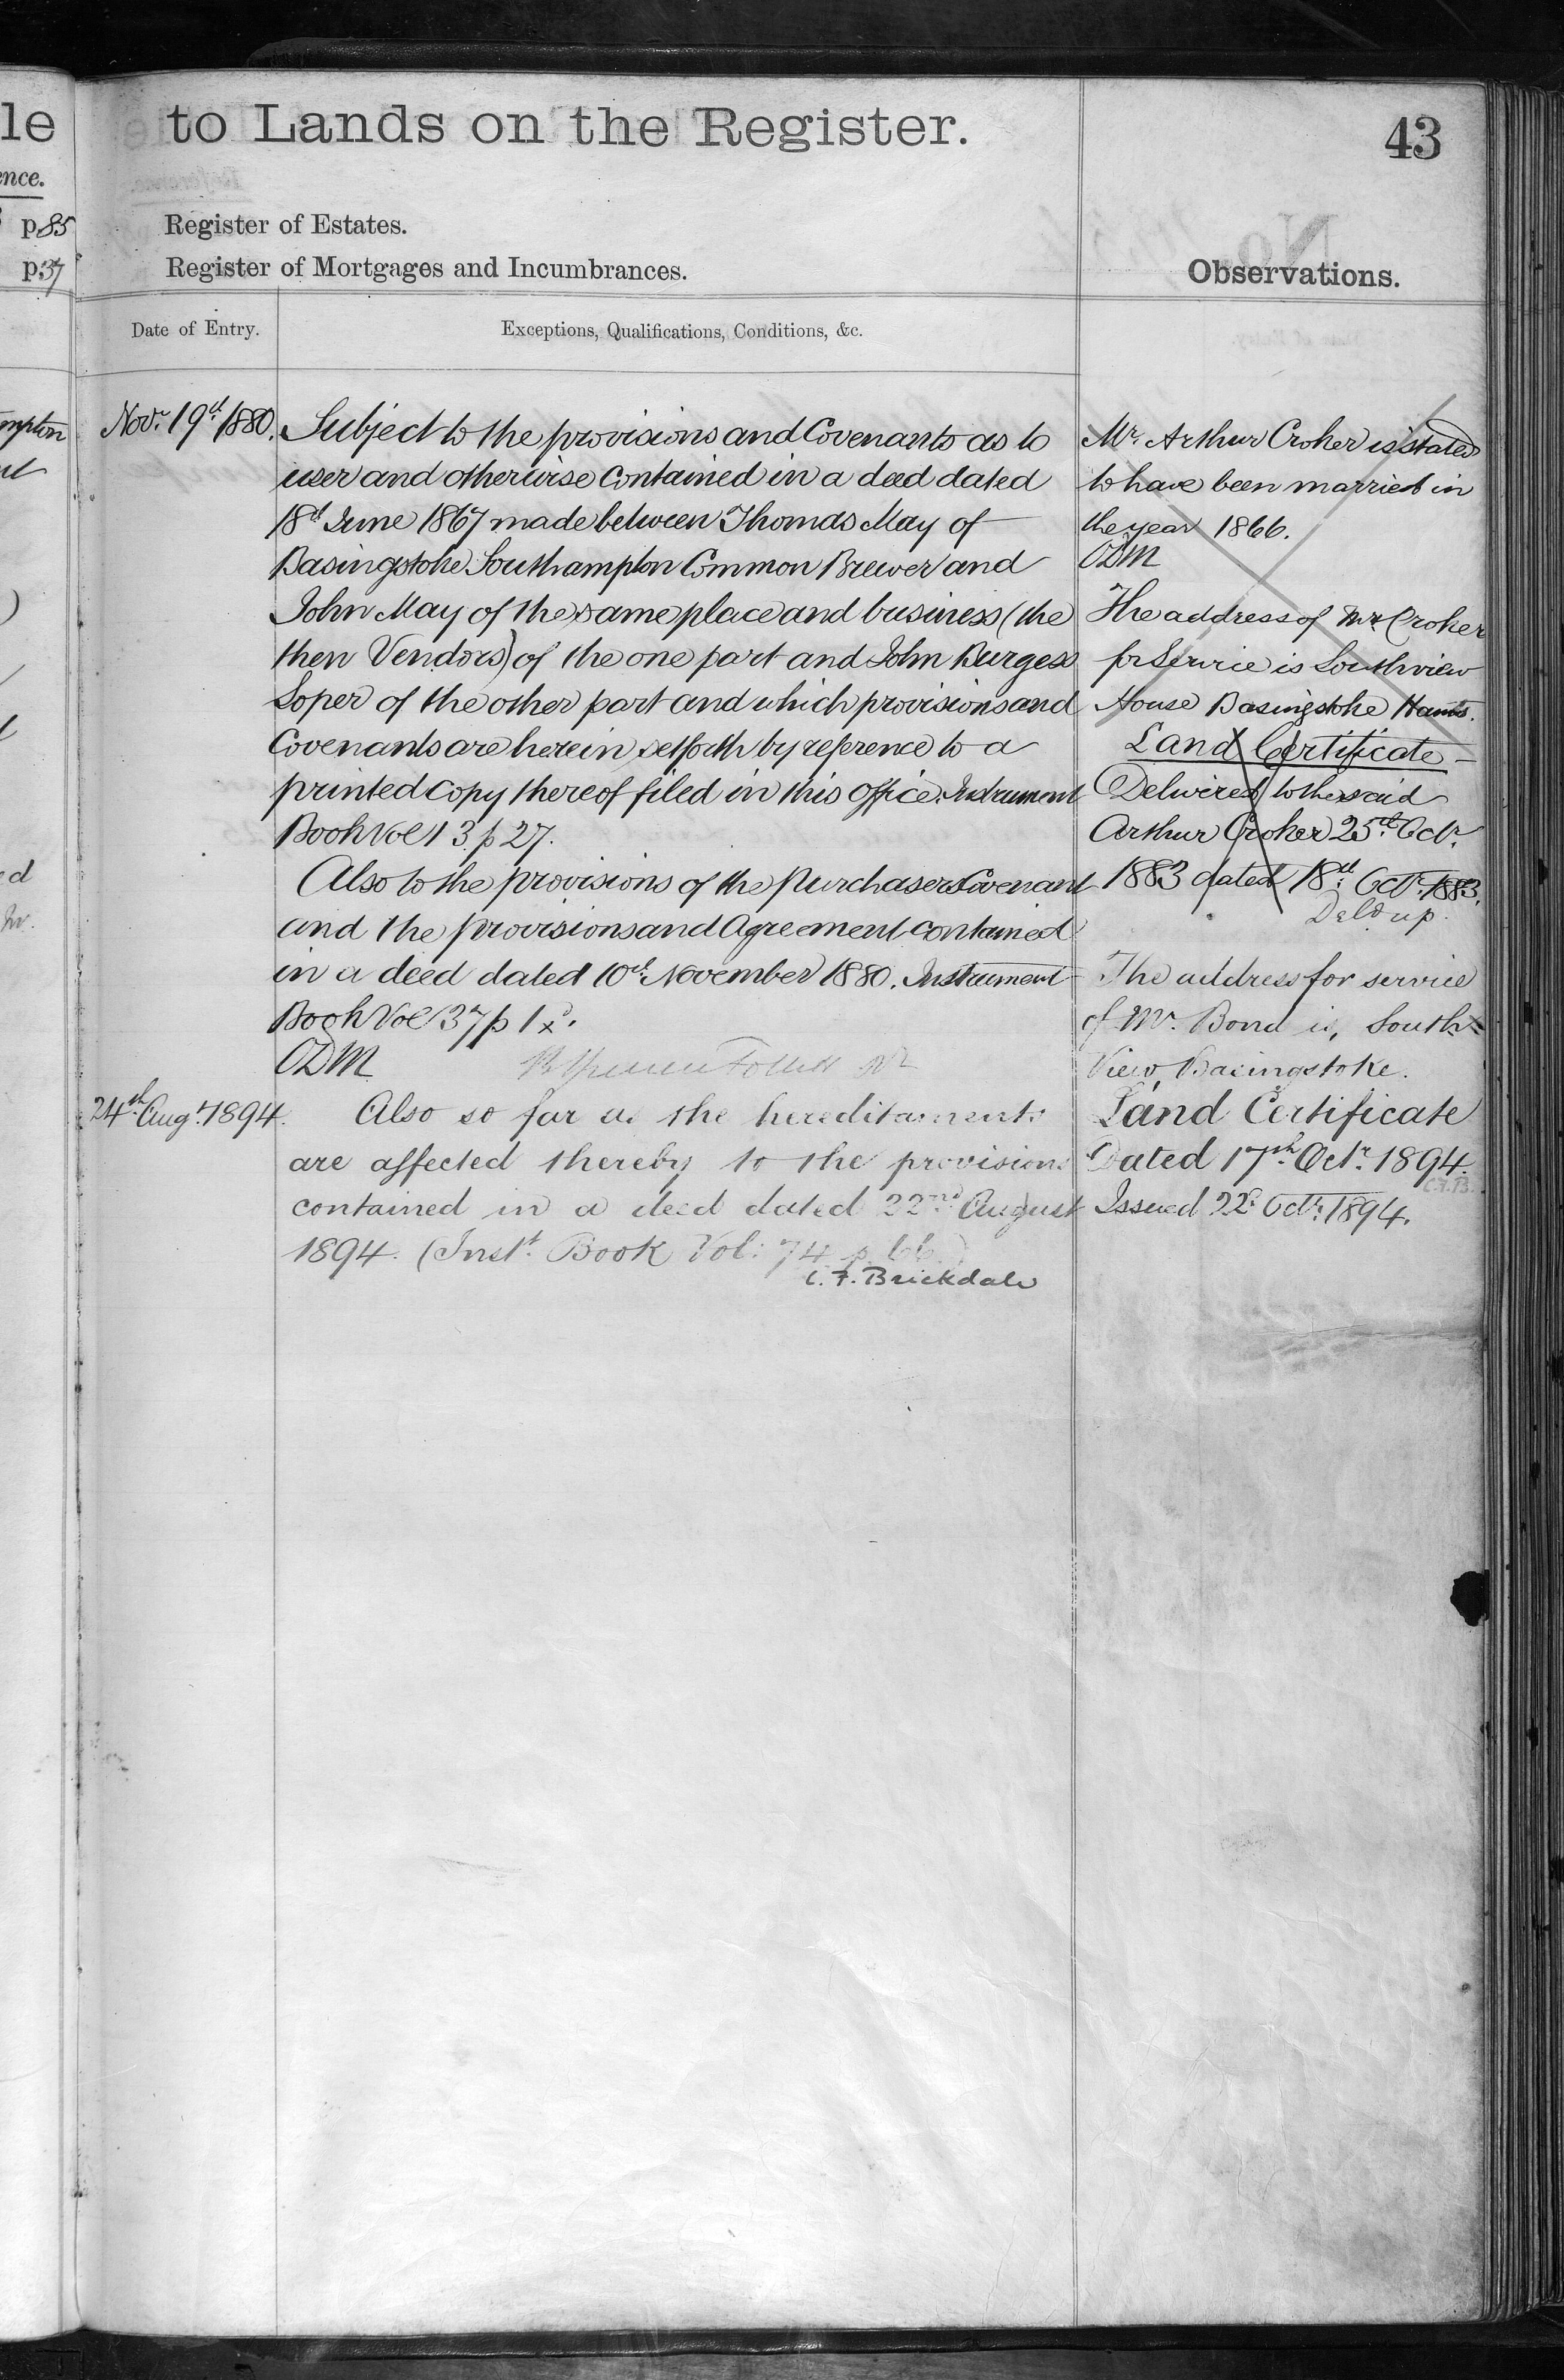 le
ence.
p 85
p. 37
mpton
ed
to Lands on the Register.
43
Register of Estates.
Register of Mortgages and Incumbrances.
Observations.
Date of Entry.
Exceptions, Qualifications, Conditions, &c.
Novr. 19th 1880.
Subject to the provisions and Covenants as to
user and otherwise contained in a deed dated
18th June 1867 made between Thomas May of
Basingstoke Southampton Common Brewer and
John May of the same place and business (the
then Vendors) of the one part and John Burgess
Soper of the other part and which provisions and
Covenants are herein set forth by reference to a
printed copy thereof filed in this office. Instrument
Book Vol 13 p 27.
Also to the provisions of the purchasers Covenant
and the provisions and Agreement contained
in a deed dated 10th November 1880. Instrument
Book Vol 37 p 1
ODM
24th Augt. 1894.
Also so far as the hereditaments
are affected thereby to the provisions
contained in a deed dated 22nd August
1894. (Inst. Book Vol: 74 p. 66)
C. F. Brickdale
Mr. Arthur Croker is stated
to have been married in
the year 1866.
ODM
The address of Mr. Croker
for Service is Southview
House Basingstoke Hants.
Land Certificate
Delivered to the said
Arthur Croker 25th Octr.
1883 dated 18th Octr. 1883.
Deld up.
The address for service
of Mr. Bond is, South
View, Basingstoke.
Land Certificate
Dated 17th Octr. 1894.
C.F.B.
Issued 22d Octr. 1894.